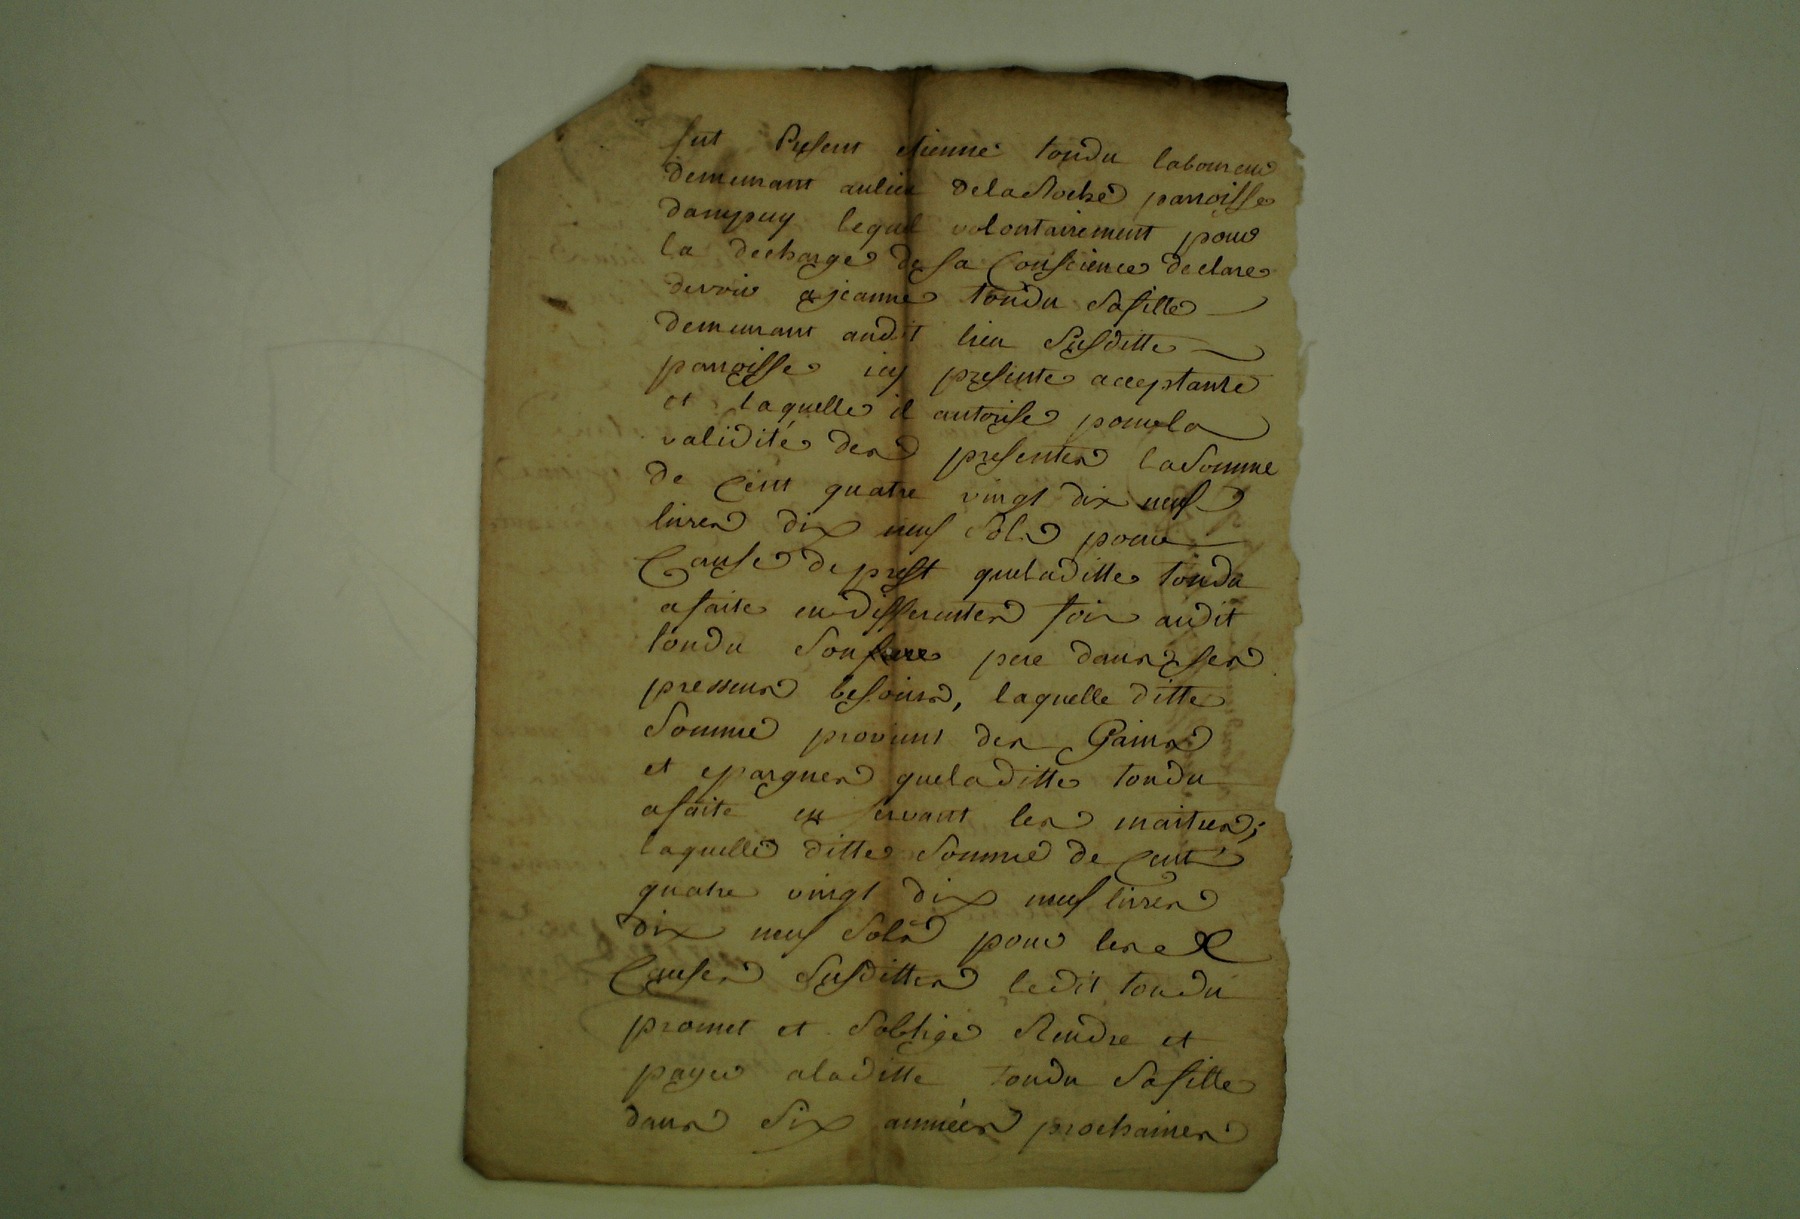 fut Présent etienne tondu laboureur
demeurant au lieu de la Roche parroisse
dampuy lequel volontairement pour
la decharge de sa Conscience declare
devoir a jeanne tondu Sa fille
demeurant audit lieu Susditte
parroisse icy presente acceptante
et laquelle il autorise pour la
validité des presentes la Somme
de Cent quatre vingt dix neuf
livres dix neuf Sols pour
Cause de prest que laditte tondu
a faite en differentes fois audit
tondu Son pere dans ses
pressens besoins, laquelle ditte
Somme provient des Gains
et epargnes que laditte tondu
a faite en servant les maitres;
laquelle ditte Somme de Cent
quatre vingt dix neuf livres
dix neuf Sols pour les
Causes Susdittes ledit tondu
promet et Soblige Rendre et
payer a laditte tondu Sa fille
dans Six années prochaines